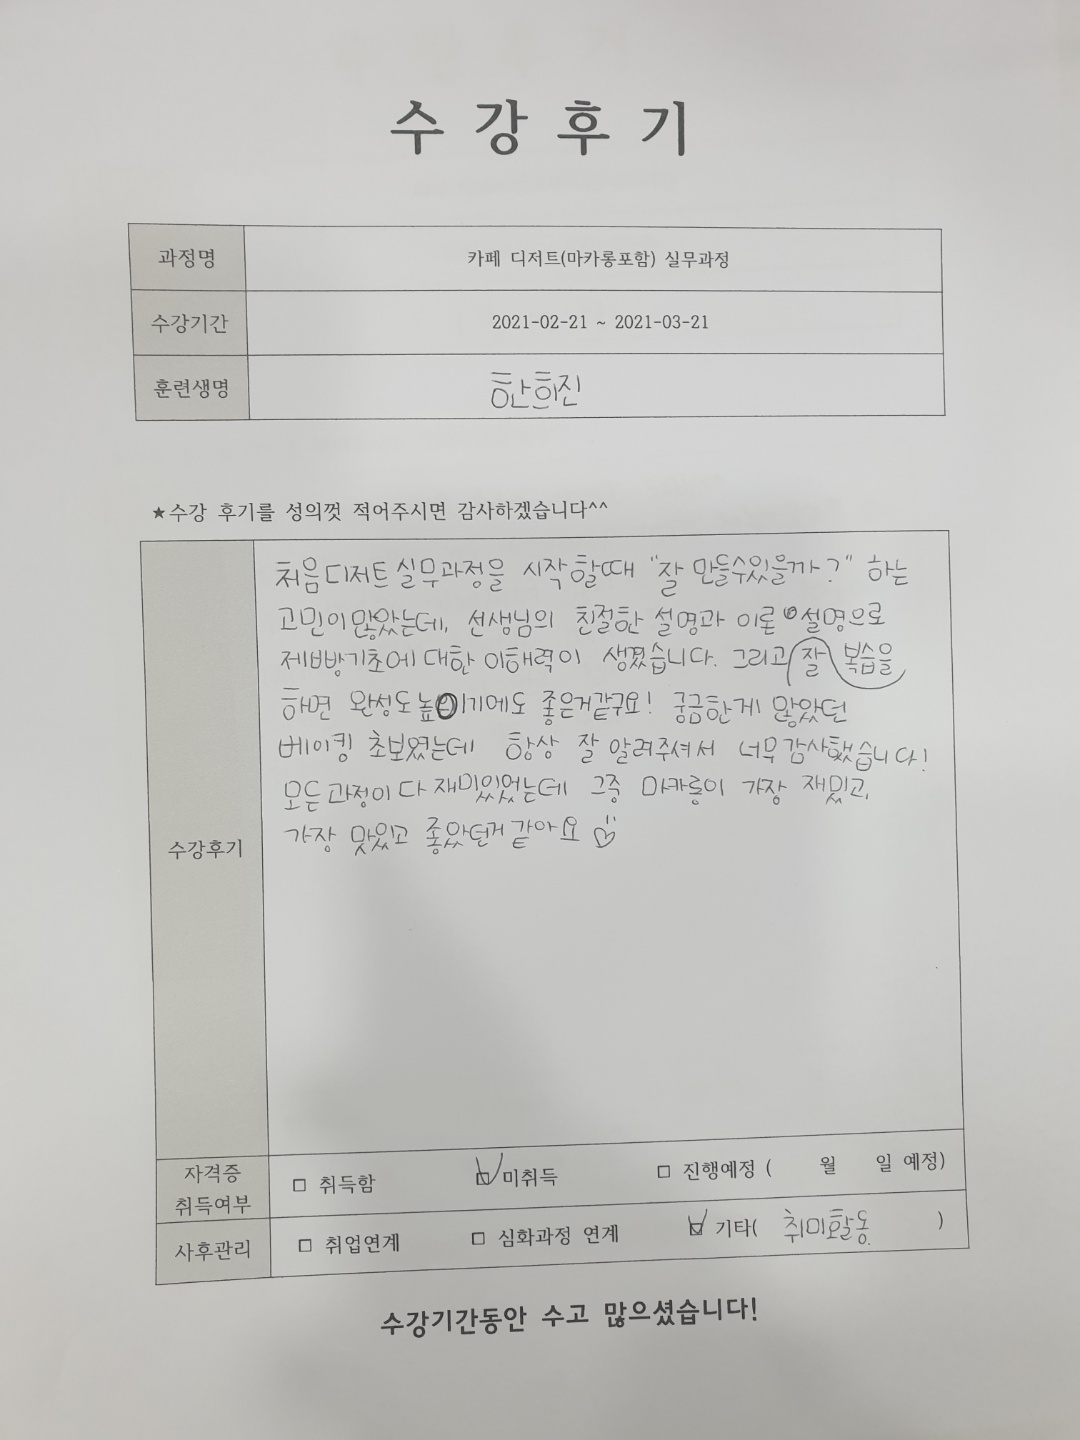 수 강 후 기
과정명 카페 디저트(마카롱포함) 실무과정
수강기간 2021-02-21 ~ 2021-03-21
훈련생명 한희진
★수강 후기를 성의껏 적어주시면 감사하겠습니다^^
수강후기
처음 디저트 실무과정을 시작할때 "잘 만들수있을까?" 하는
고민이 많았는데, 선생님의 친절한 설명과 이론 설명으로
제빵기초에 대한 이해력이 생겼습니다. 그리고 잘 복습을
하면 완성도 높이기에도 좋은거같구요! 궁금한게 많았던
베이킹 초보였는데 항상 잘 알려주셔서 너무 감사했습니다!
모든 과정이 다 재미있었는데 그중 마카롱이 가장 재밌고,
가장 맛있고 좋았던거 같아요 ♡
자격증 취득여부 □ 취득함 ☑ 미취득 □ 진행예정 ( 월 일 예정)
사후관리 □ 취업연계 □ 심화과정 연계 ☑ 기타( 취미활동 )
수강기간동안 수고 많으셨습니다!